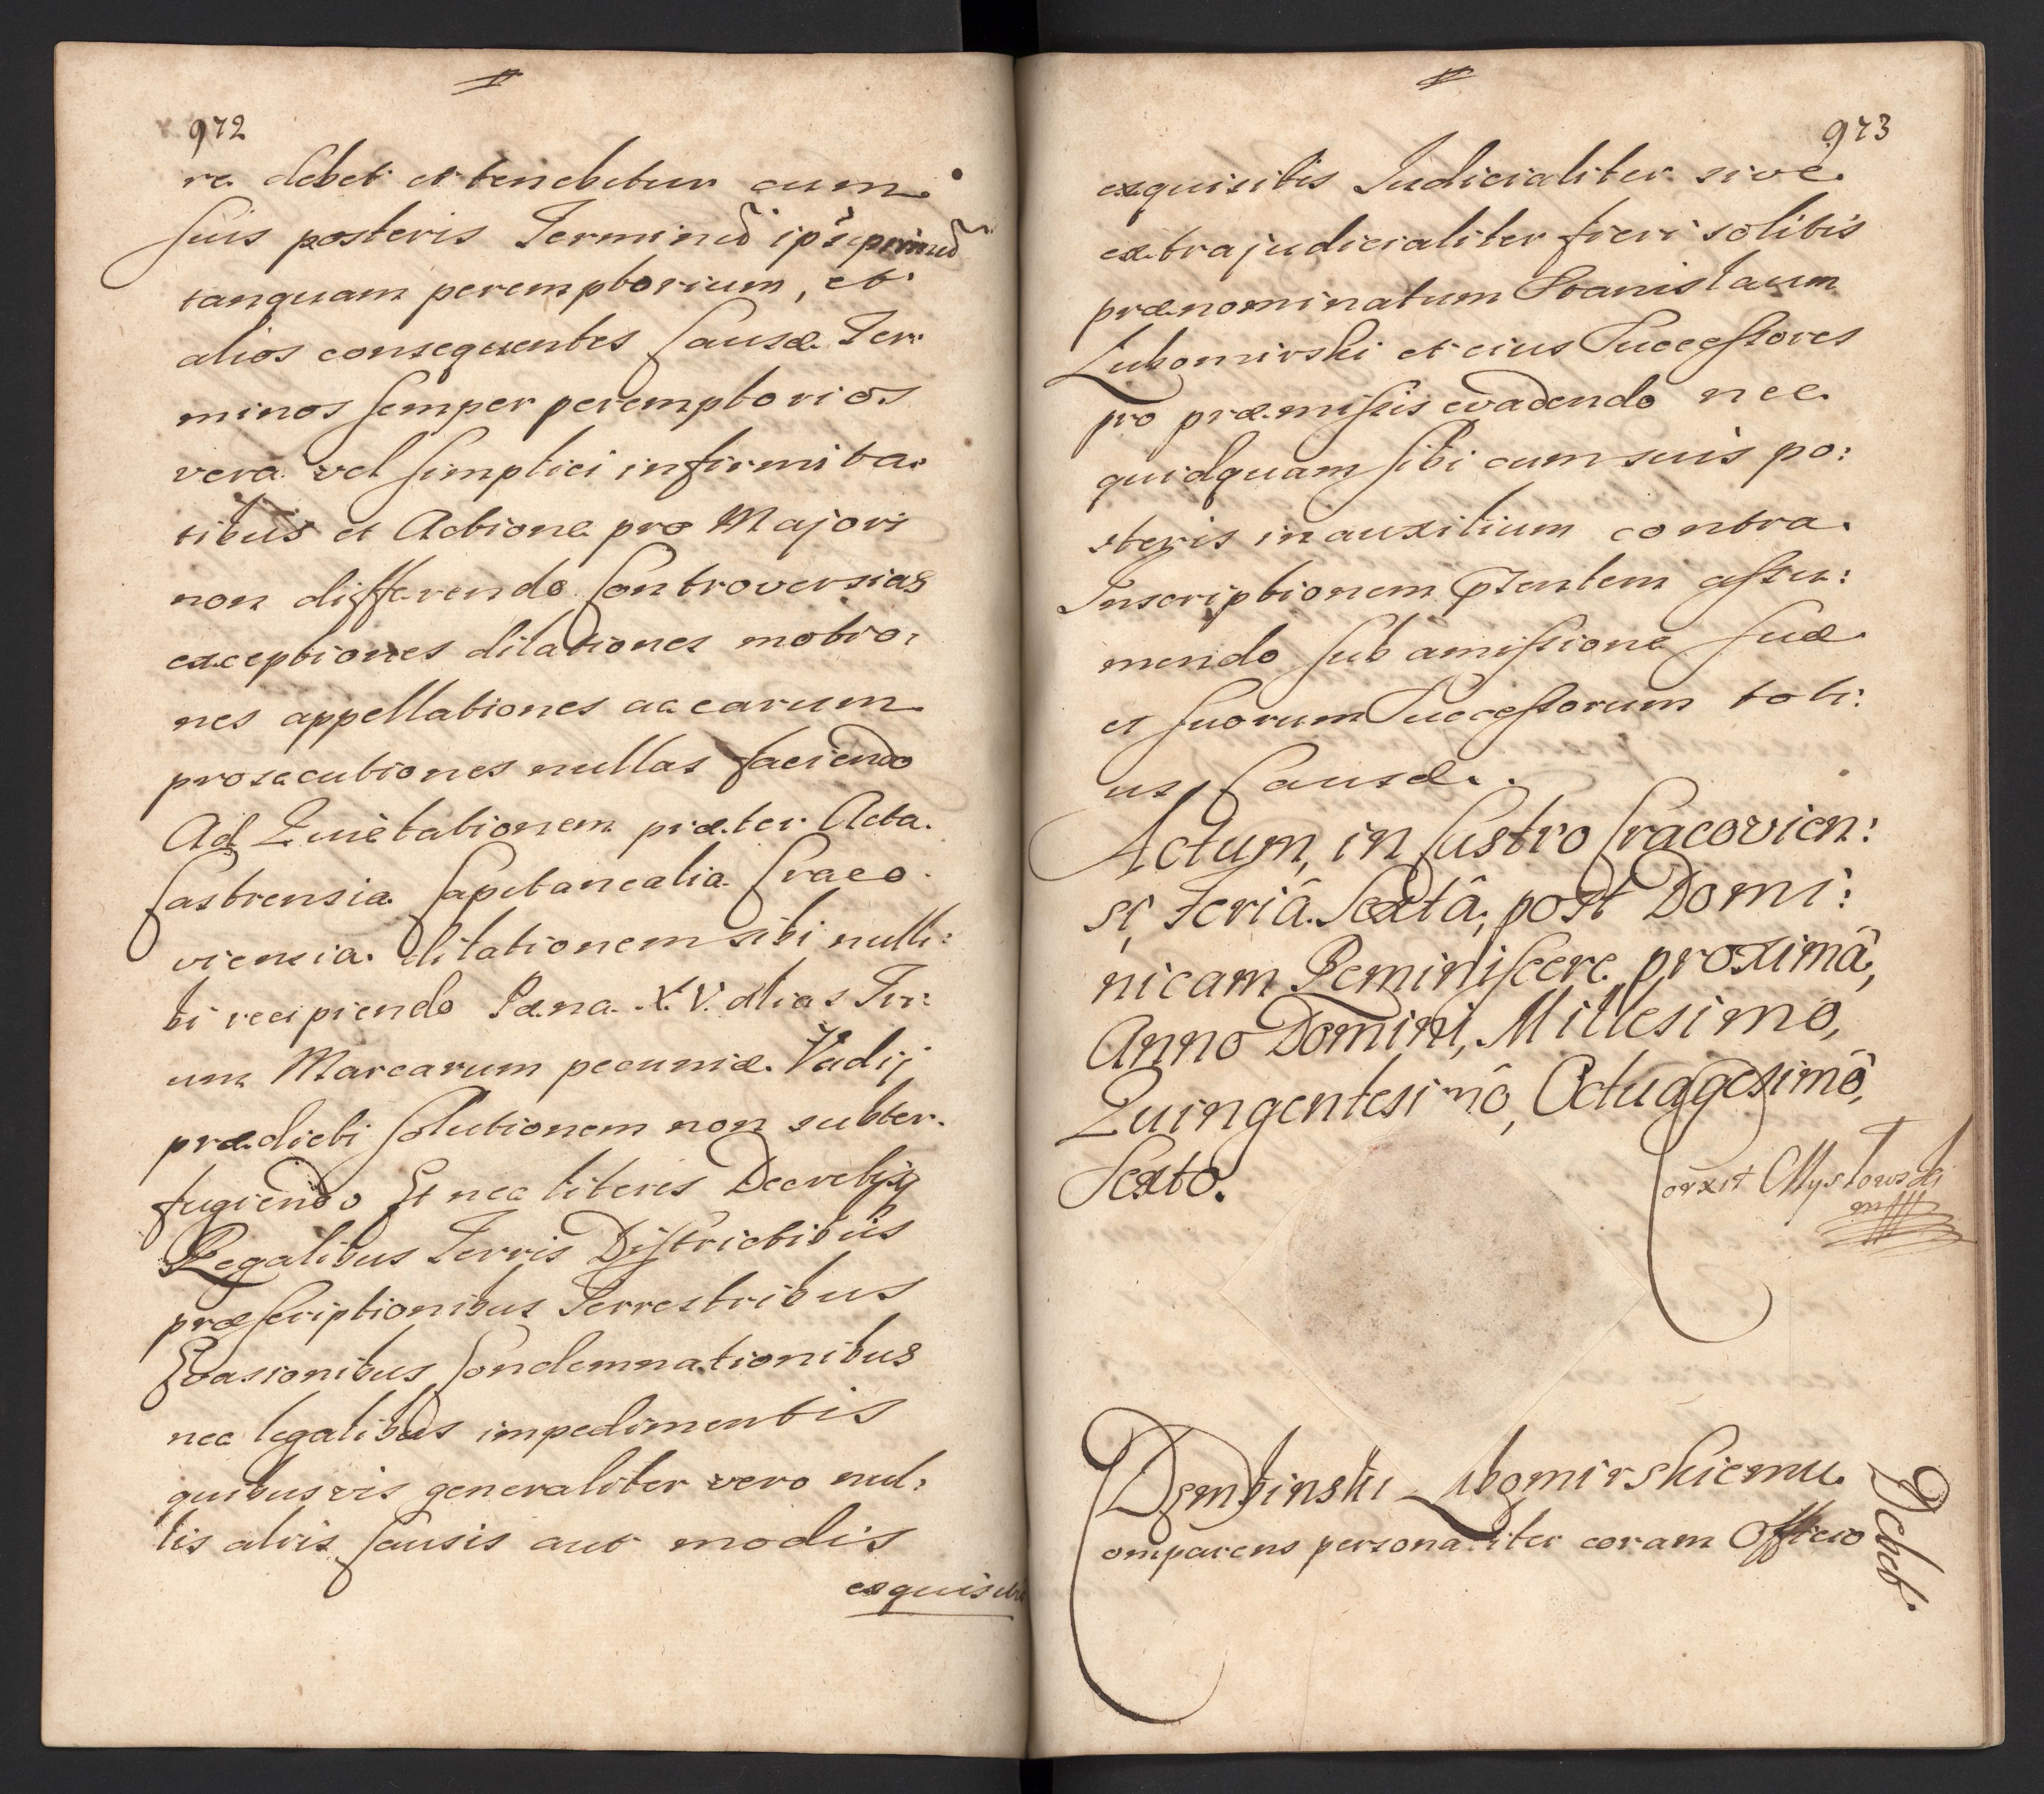 972
re debet et tenebitur cum
suis posteris Terminū ip̄s primū
tanquam peremptorium, et
alios consequentes Causæ Ter:
minos semper peremptorios
vera vel simplici infirmita:
tibus et Actione pro Majori
non differendo Controversias
exceptiones dilationes motio:
nes appellationes ac earum
prosecutiones nullas faciendo
Ad Quietationem præter Acta
Castrensia Capitanealia Craco:
viensia dilationem sibi nulli:
bi recipiendo Pæna X.V. alias Tri:
um Marcarum pecuniæ Vadij
prædicti solutionem non subter:
fugiendo Et nec literis Decretisq
Regalibus Terris Districtibus
præscriptionibus Terrestribus
Evasionibus Condemnationibus
nec legalibus impedimentis
quibusvis generaliter vero nul:
lis aliis Causis aut modis
exquisitis
973
exquisitis Judicialiter sive
extrajudicialiter fieri solitis
prænominatum Stanislaum
Lubomirski et eius Successores
pro præmissis evadendo nec
quidquam sibi cum suis po:
steris in auxilium contra
Inscriptionem p̄sentem assu:
mendo sub amissione suæ
et suorum Successorum toti:
us Causæ.
Actum, in Castro Cracovien:
si, Feriâ Sextâ, post Domi:
nicam Reminiscere proximâ,
Anno Domini, Millesimo,
Quingentesimô, Octuagesimô,
Sexto.
Corxit Mysłowski
mpp
Dembinski Lubomirskiemu
Debet.
Comparens personaliter coram Officio